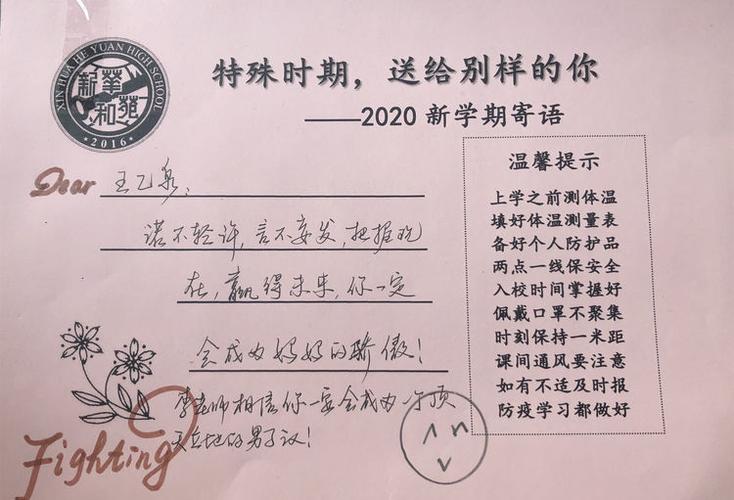 XINHUA HE YUAN HIGH SCHOOL
新華
和苑
·2016·
特殊时期，送给别样的你
——2020 新学期寄语
Dear 王乙泉：
诺不轻许，言不妄发，把握现
在，赢得未来，你一定
会成为妈妈的骄傲！
李老师相信你一定会成为一个顶
天立地的男子汉！
Fighting
温馨提示
上学之前测体温
填好体温测量表
备好个人防护品
两点一线保安全
入校时间掌握好
佩戴口罩不聚集
时刻保持一米距
课间通风要注意
如有不适及时报
防疫学习都做好